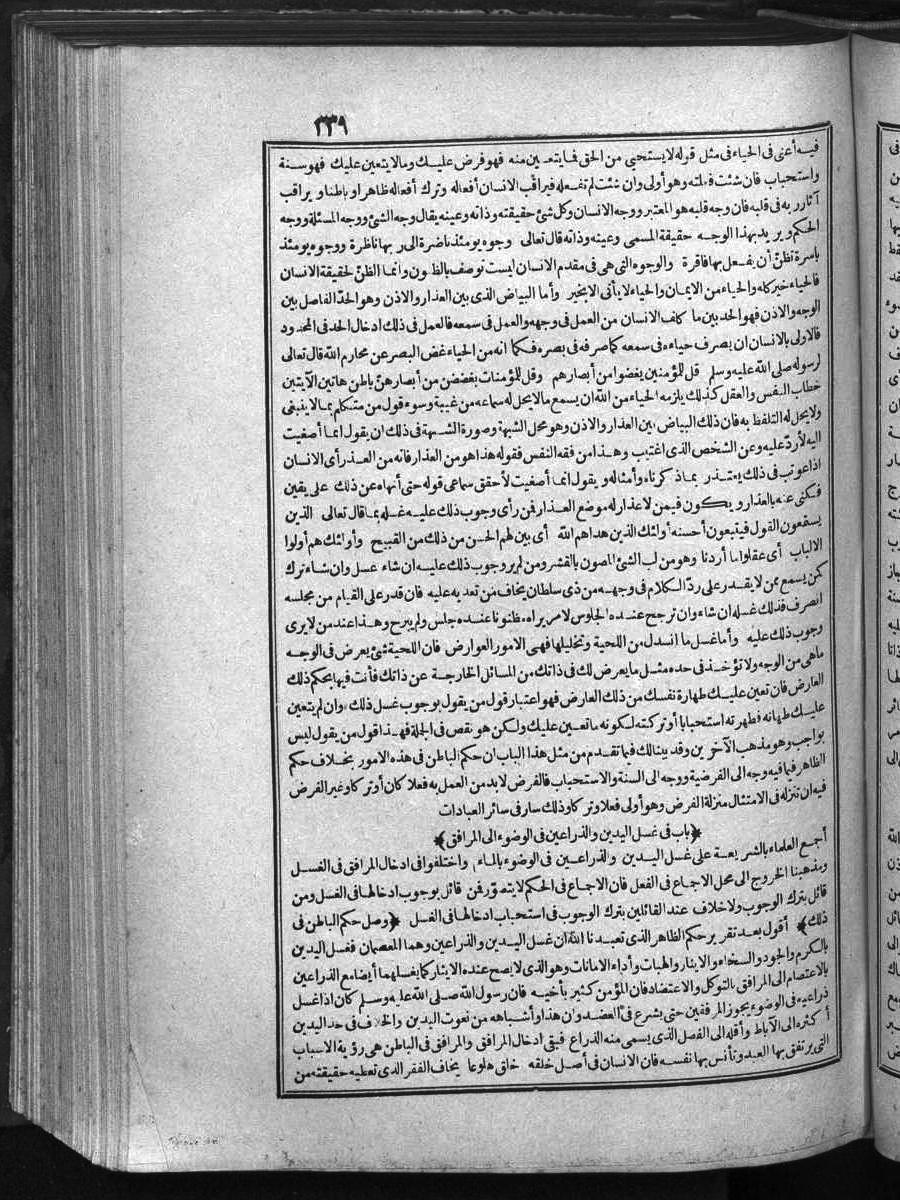 ٣٣٩
فيه أعنى فى الحياء فى مثل قوله لا يستحيى من الحق فما يتعين منه فهو فرض عليك وما لا يتعين عليك فهو سنة
واستحباب فان شئت فعلته وهو أولى وان شئت لم تفعله فيراقب الانسان أفعاله وترك أفعاله ظاهرا وباطنا و يراقب
آثار ربه فى قلبه فان وجه قلبه هو المعتبر ووجه الانسان وكل شئ حقيقته وذاته وعينه يقال وجه الشئ ووجه المسئلة ووجه
الحكم و يريد بهذا الوجه حقيقة المسمى وعينه وذاته قال تعالى وجوه يومئذ ناضرة الى ربها ناظرة ووجوه يومئذ
باسرة تظن أن يفعل بها فاقرة والوجوه التى هى فى مقدم الانسان ليست توصف بالظنون وانما الظن لحقيقة الانسان
فالحياء خير كله والحياء من الايمان والحياء لا يأتى الا بخير وأما البياض الذى بين العذار والاذن وهو الحد الفاصل بين
الوجه والاذن فهو الحد بين ما كلف الانسان من العمل فى وجهه والعمل فى سمعه فالعمل فى ذلك ادخال الحد فى المحدود
فالاولى بالانسان ان يصرف حياءه فى سمعه كما صرفه فى بصره فكما انه من الحياء غض البصر عن محارم الله قال تعالى
لرسوله صلى الله عليه وسلم قل للمؤمنين يغضوا من أبصارهم وقل للمؤمنات يغضضن من أبصارهن باطن هاتين الآيتين
خطاب النفس والعقل كذلك يلزمه الحياء من الله ان يسمع ما لا يحل له سماعه من غيبة وسوء قول من متكلم بما لا ينبغى
ولا يحل له التلفظ به فان ذلك البياض بين العذار والاذن وهو محل الشبهة وصورة الشبهة فى ذلك ان يقول انما أصغيت
اليه لأرد عليه وعن الشخص الذى اغتيب وهذا من فقه النفس فقوله هذا هو من العذار فانه من العذر أى الانسان
اذا عوتب فى ذلك يعتذر بما ذكرناه وأمثاله و يقول انما أصغيت لأحقق سماعى قوله حتى أنهاه عن ذلك على يقين
فكنى عنه بالعذار و يكون فيمن لا عذار له موضع العذار فمن رأى وجوب ذلك عليه غسله بما قال تعالى الذين
يستمعون القول فيتبعون أحسنه أولئك الذين هداهم الله أى بين لهم الحسن من ذلك من القبيح وأولئك هم أولوا
الالباب أى عقلوا ما أردنا وهو من لب الشئ المصون بالقشر ومن لم ير وجوب ذلك عليه ان شاء غسل وان شاء ترك
كمن يسمع ممن لا يقدر على رد الكلام فى وجهه من ذى سلطان يخاف من تعديه عليه فان قدر على القيام من مجلسه
انصرف فذلك غسله ان شاء وان ترجح عنده الجلوس لامر يراه مظنونا عنده جلس ولم يبرح وهذا عند من لا يرى
وجوب ذلك عليه وأما غسل ما انسدل من اللحية وتخليلها فهى الامور العوارض فان اللحية شئ يعرض فى الوجه
ما هى من الوجه ولا تؤخذ فى حده مثل ما يعرض لك فى ذاتك من المسائل الخارجة عن ذاتك فأنت فيها بحكم ذلك
العارض فان تعين عليك طهارة نفسك من ذلك العارض فهو اعتبار قول من يقول بوجوب غسل ذلك وان لم يتعين
عليك طهارته فطهرته استحبابا أو تركته لكونه ما تعين عليك ولكن هو نقص فى الجملة فهذا قول من يقول ليس
بواجب وهو مذهب الآخرين وقد بينا لك فيما تقدم من مثل هذا الباب ان حكم الباطن فى هذه الامور بخلاف حكم
الظاهر فيما فيه وجه الى الفرضية ووجه الى السنة والاستحباب فالفرض لابد من العمل به فعلا كان أو تركا وغير الفرض
فيه ان تنزله فى الامتثال منزلة الفرض وهو أولى فعلا وتركا وذلك سار فى سائر العبادات
﴿باب فى غسل اليدين والذراعين فى الوضوء الى المرافق﴾
أجمع العلماء بالشريعة على غسل اليدين والذراعين فى الوضوء بالماء واختلفوا فى ادخال المرافق فى الغسل
ومذهبنا الخروج الى محل الاجماع فى الفعل فان الاجماع فى الحكم لا يتصور فمن قائل بوجوب ادخالها فى الغسل ومن
قائل بترك الوجوب ولا خلاف عند القائلين بترك الوجوب فى استحباب ادخالها فى الغسل ﴿وصل حكم الباطن فى
ذلك﴾ أقول بعد تقرير حكم الظاهر الذى تعبدنا الله ان غسل اليدين والذراعين وهما المعصمان فغسل اليدين
بالكرم والجود والسخاء والايثار والهبات وأداء الامانات وهو الذى لا يصح عنده الايثار كما يغسلهما أيضا مع الذراعين
بالاعتصام الى المرافق بالتوكل والاعتضاد فان المؤمن كثير بأخيه فان رسول الله صلى الله عليه وسلم كان اذا غسل
ذراعيه فى الوضوء يجوز المرفقين حتى يشرع فى العضد وان هذا وأشباهه من نعوت اليدين والخلاف فى حد اليدين
أكثره الى الآباط وأقله الى الفصل الذى يسمى منه الذراع فبقى ادخال المرافق والمرافق فى الباطن هى رؤية الاسباب
التى يرتفق بها العبد وتأنس بها نفسه فان الانسان فى أصل خلقه خلق هلوعا يخاف الفقر الذى تعطيه حقيقته من